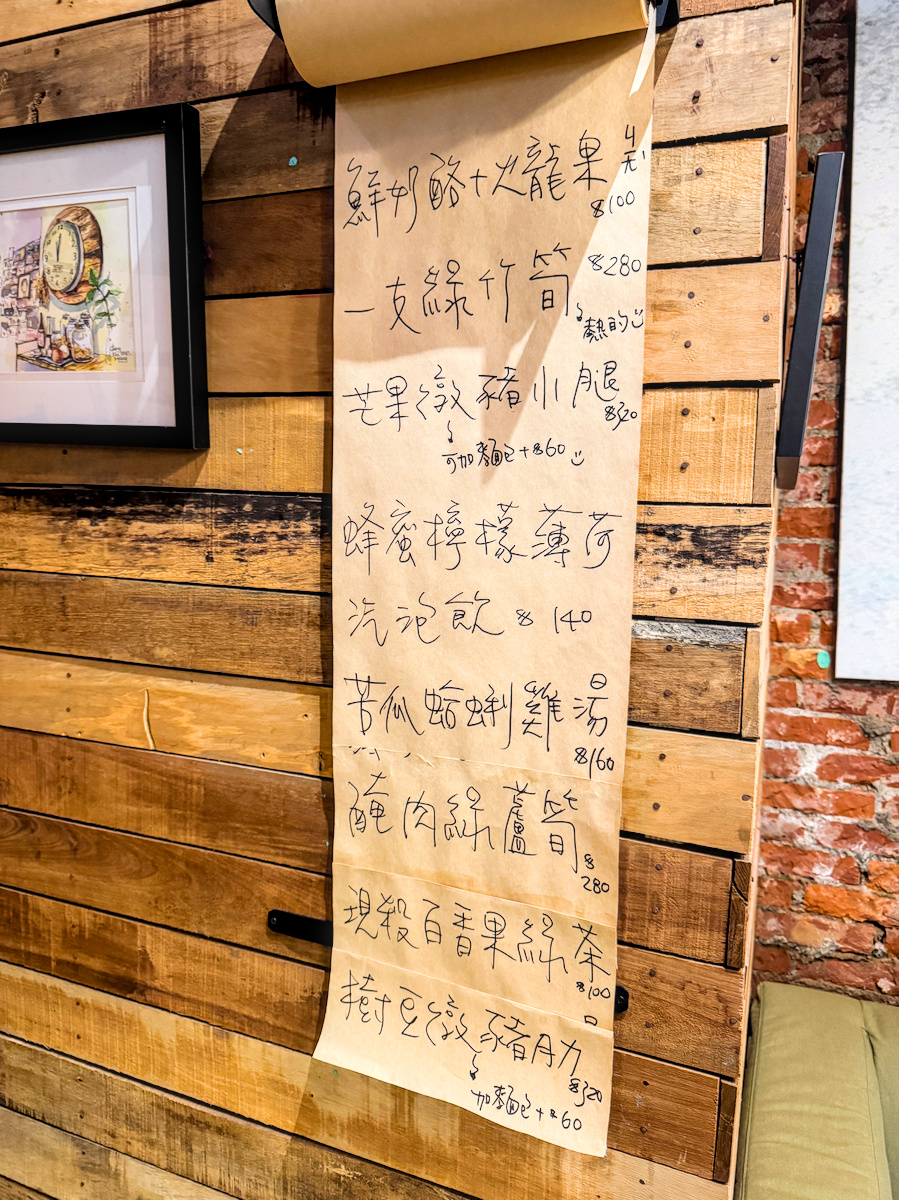 鮮奶酪+火龍果
$100
一支綠竹筍 $280
熱的
芒果燉豬小腿
$320
可加麵包+$60
蜂蜜檸檬薄荷
汽泡飲 $140
苦瓜蛤蜊雞湯
$160
醃肉綠蘆筍
$280
現殺百香果綠茶
$100
樹豆燉豬
$320
加麵包+$60